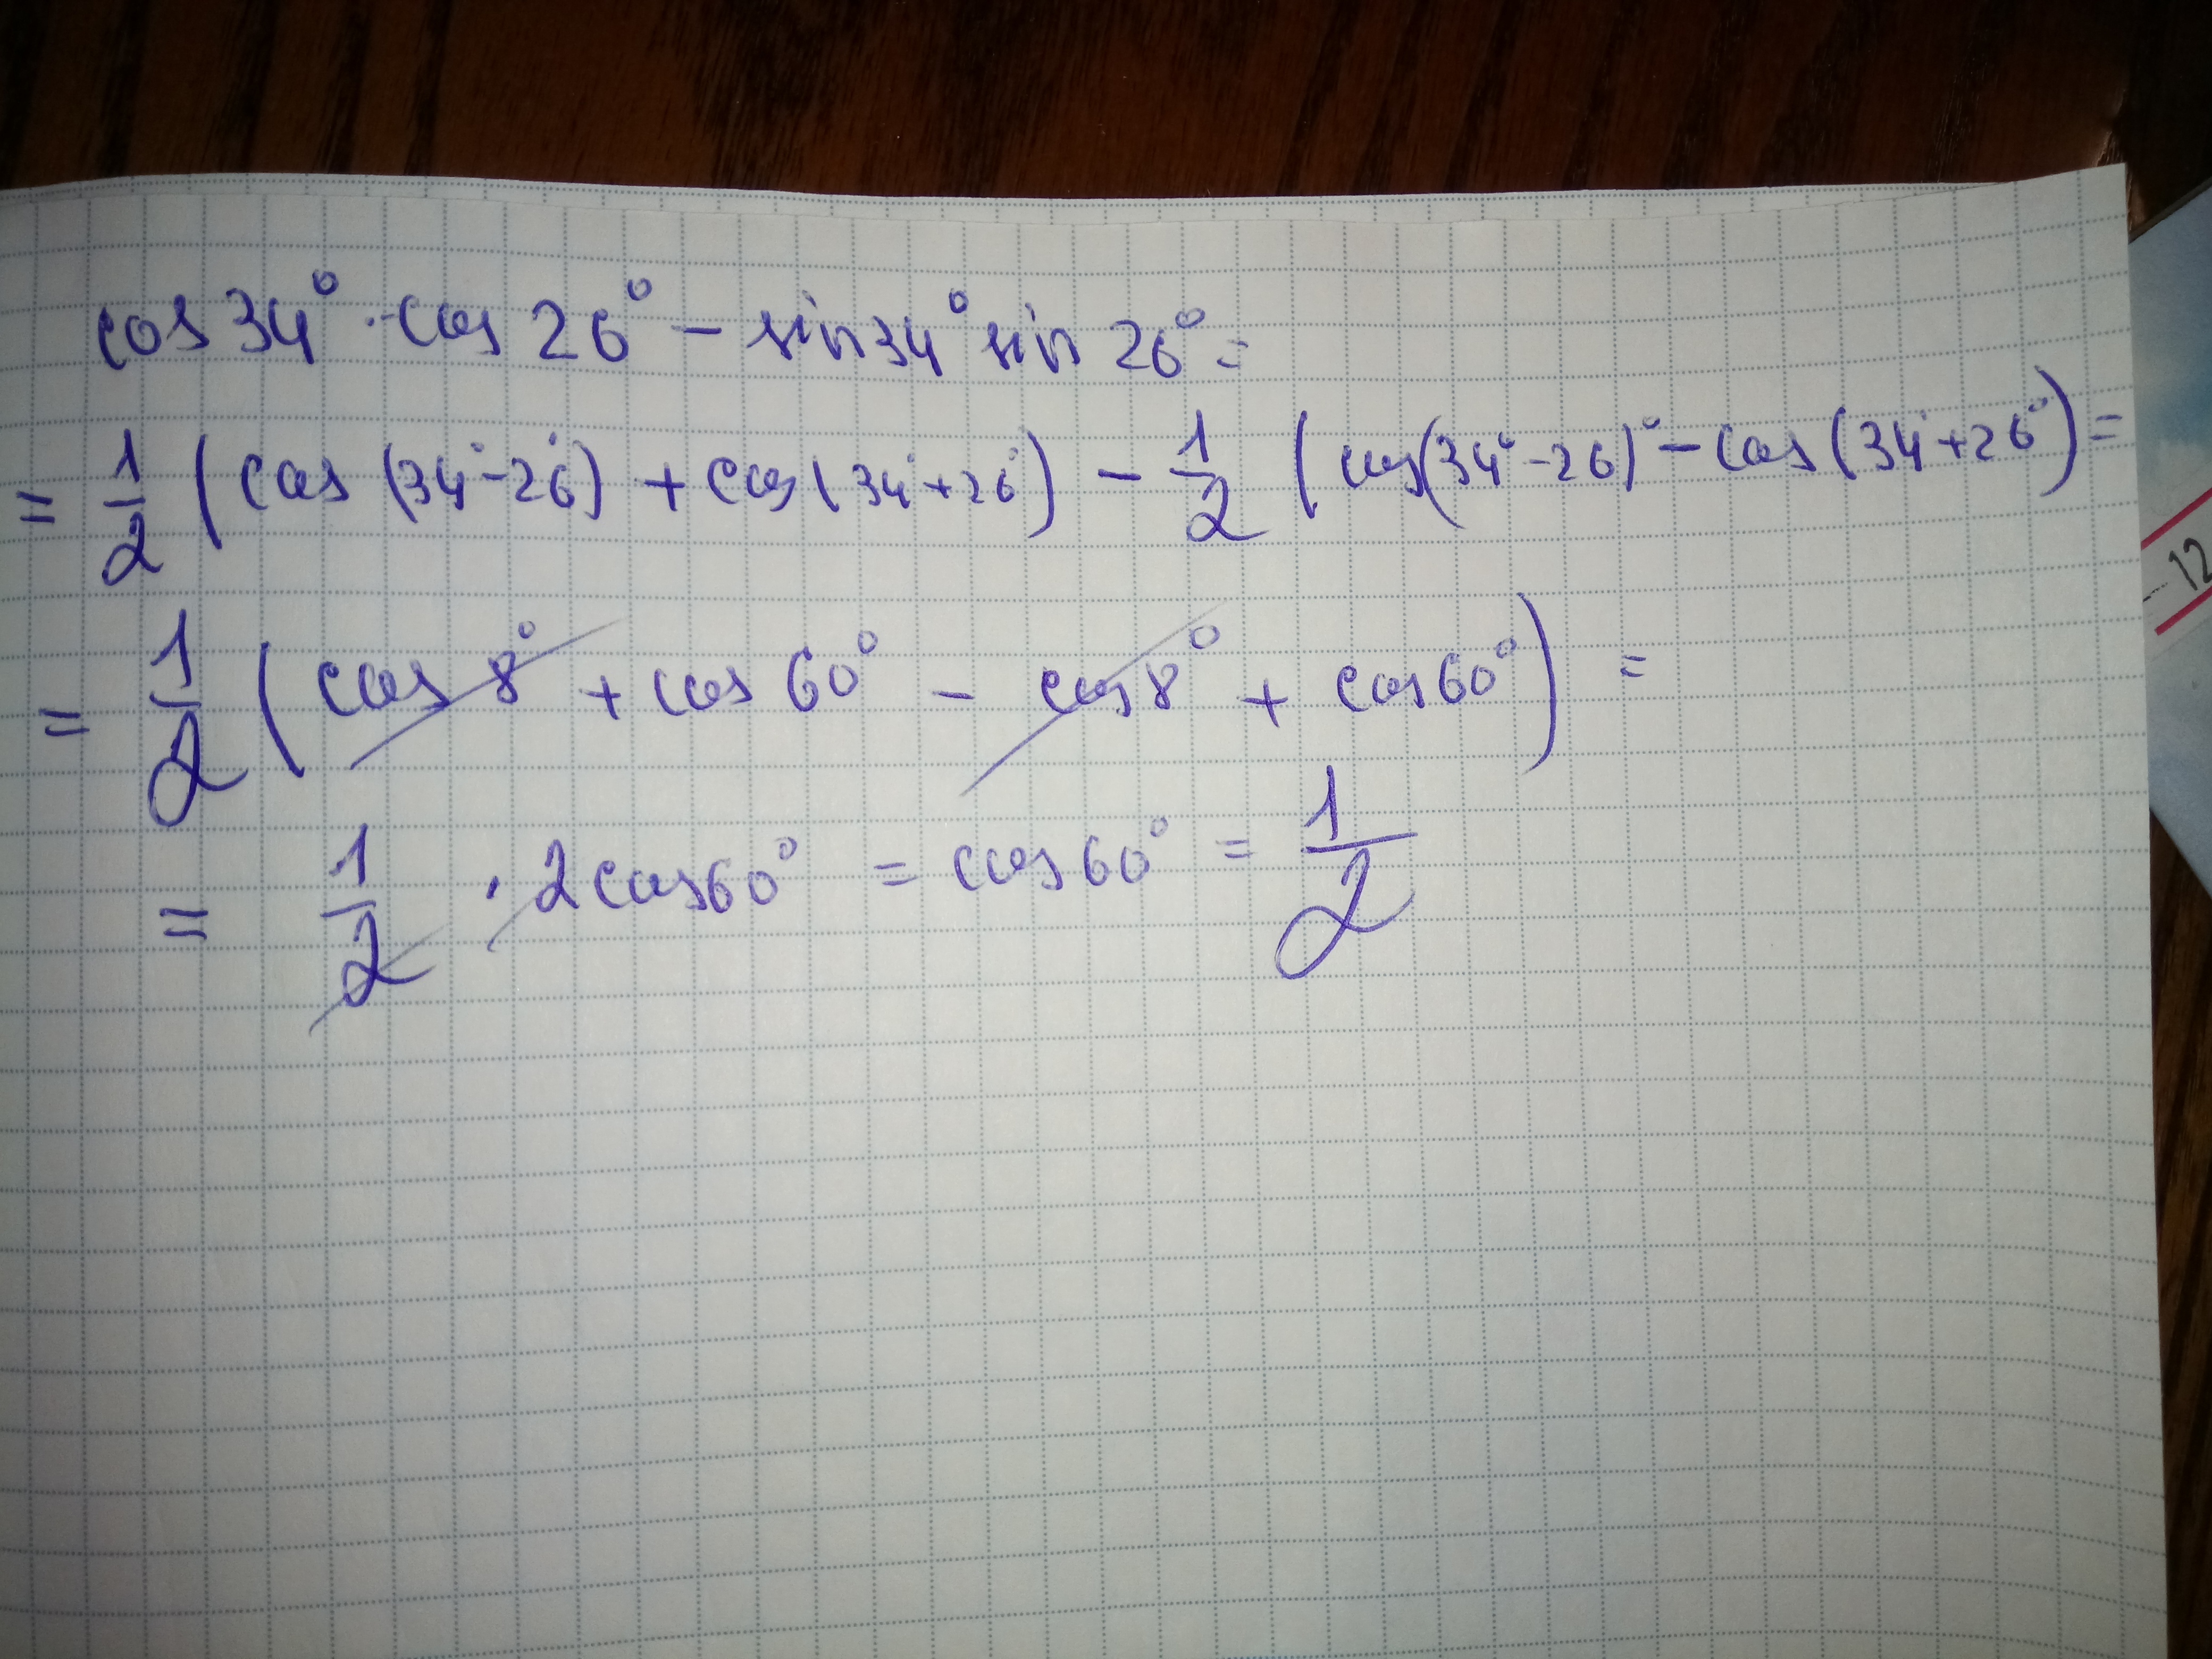 cos 34° · cos 26° - sin 34° sin 26° =
= 1/2 (cos (34° - 26°) + cos (34° + 26°) - 1/2 (cos(34° - 26)° - cos (34° + 26°) =
- 12
= 1/2 (cos 8° + cos 60° - cos 8° + cos 60°) =
= 1/2 · 2 cos 60° = cos 60° = 1/2